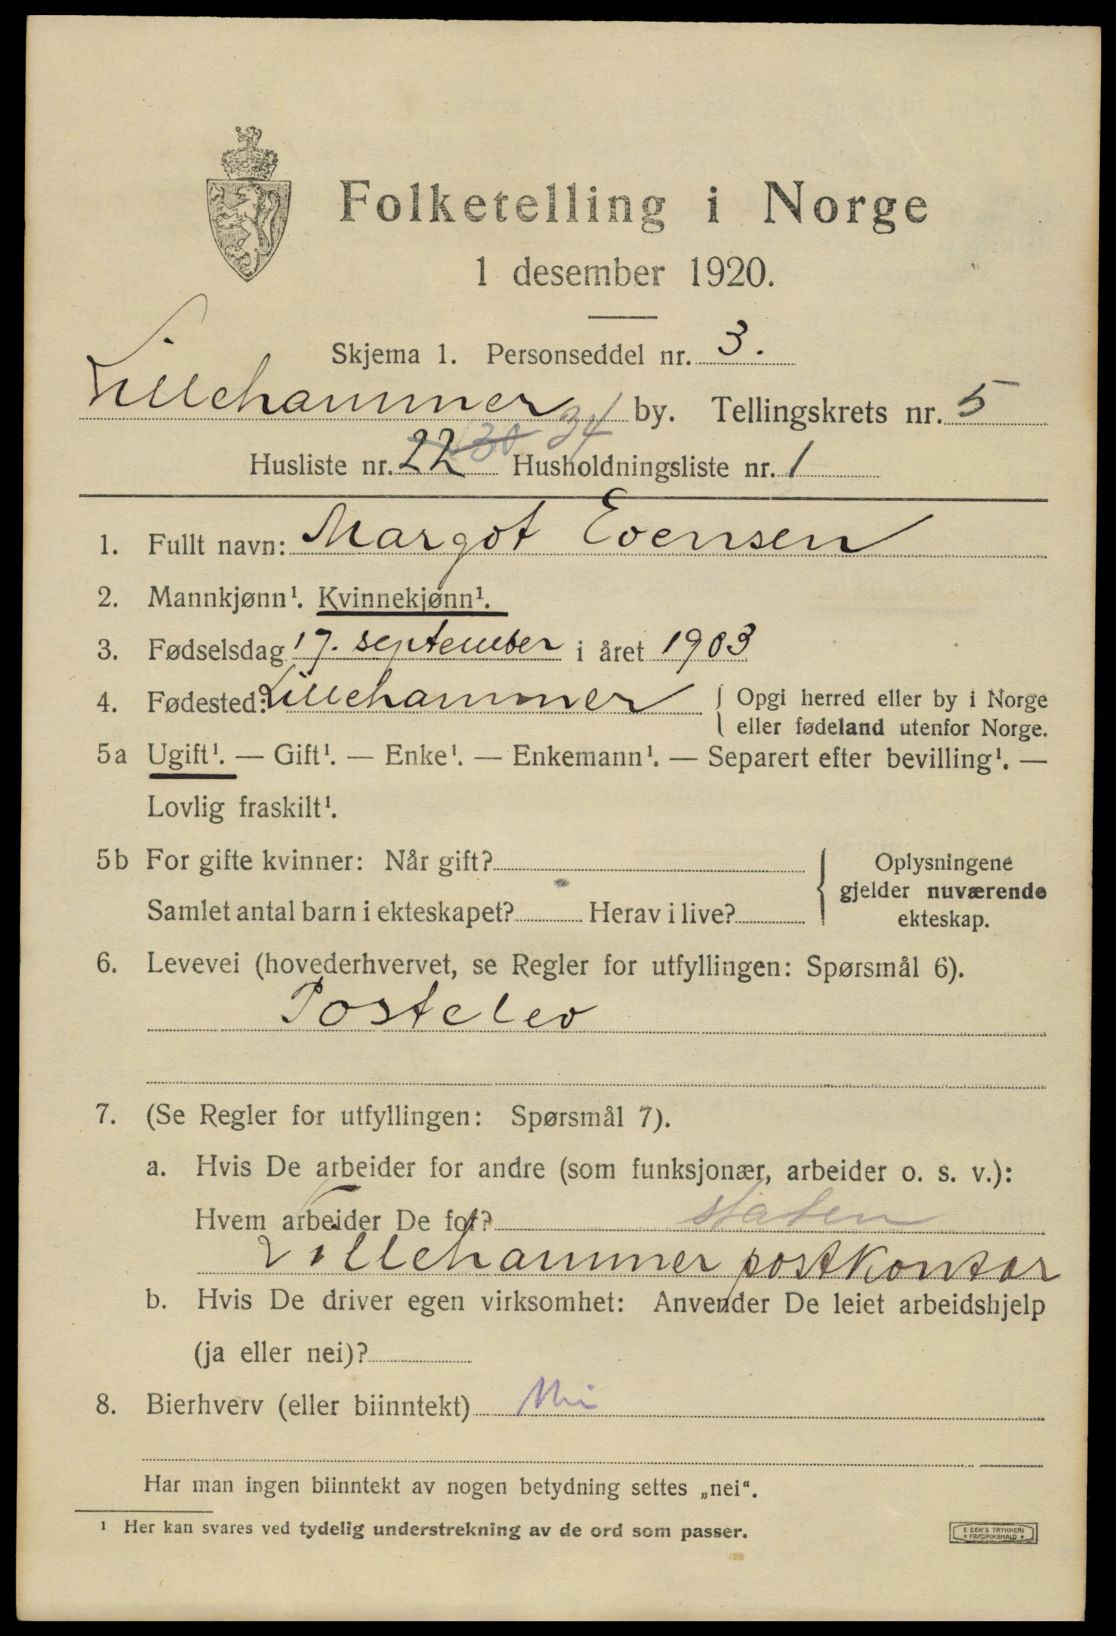 Folketelling i Norge
1 desember 1920.
Skjema 1. Personseddel nr. 3.
Lillehammer by. Tellingskrets nr. 5
Husliste nr. 22 130 34 Husholdningsliste nr. 1
1. Fullt navn: Margot Evensen
2. Mannkjønn¹. Kvinnekjønn¹.
3. Fødselsdag 17. september i året 1903
4. Fødested: Lillehammer { Opgi herred eller by i Norge
eller fødeland utenfor Norge.
5a Ugift¹. — Gift¹. — Enke¹. — Enkemann¹. — Separert efter bevilling¹. —
Lovlig fraskilt¹.
5b For gifte kvinner: Når gift?
Samlet antal barn i ekteskapet? Herav i live?
Oplysningene
gjelder nuværende
ekteskap.
6. Levevei (hovederhvervet, se Regler for utfyllingen: Spørsmål 6).
Postelev
7. (Se Regler for utfyllingen: Spørsmål 7).
a. Hvis De arbeider for andre (som funksjonær, arbeider o. s. v.):
Hvem arbeider De for? staten
Lillehammer postkontor
b. Hvis De driver egen virksomhet: Anvender De leiet arbeidshjelp
(ja eller nei)?
8. Bierhverv (eller biinntekt) Nei
Har man ingen biinntekt av nogen betydning settes „nei“.
¹ Her kan svares ved tydelig understrekning av de ord som passer.
E. SEM'S TRYKKERI
FREDRIKSHALD